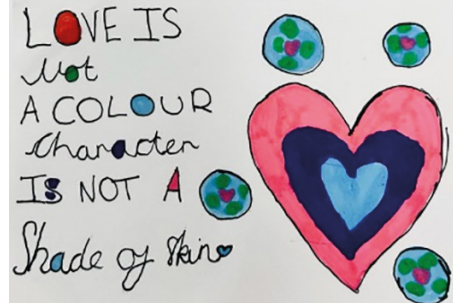 LOVE IS
Not
A COLOUR
Character
IS NOT A
Shade of skin